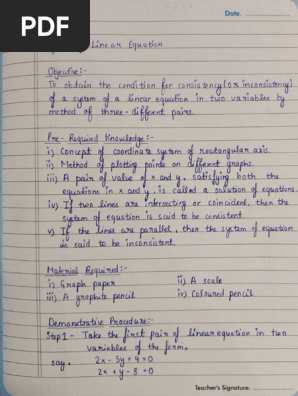 PDF
Date.
Linear Equation
Objective:-
To obtain the condition for consistency (or inconsistency)
of a system of a linear equation in two variables by
method of three-different pairs.
Pre-Required Knowledge:-
i) Concept of coordinate system of rectangular axis.
ii) Method of plotting points on different graphs.
iii) A pair of value of x and y, satisfying both the
equations in x and y, is called a solution of equations.
iv) If two lines are intersecting or coincident, then the
system of equation is said to be consistent.
v) If the lines are parallel, then the system of equation
is said to be inconsistent.
Material Required:-
i) Graph paper ii) A scale
iii) A graphite pencil iv) Coloured pencil
Demonstrative Procedure:-
Step 1 - Take the first pair of linear equation in two
variables of the form.
say, 2x - 5y + 4 = 0
2x + y - 8 = 0
Teacher's Signature.